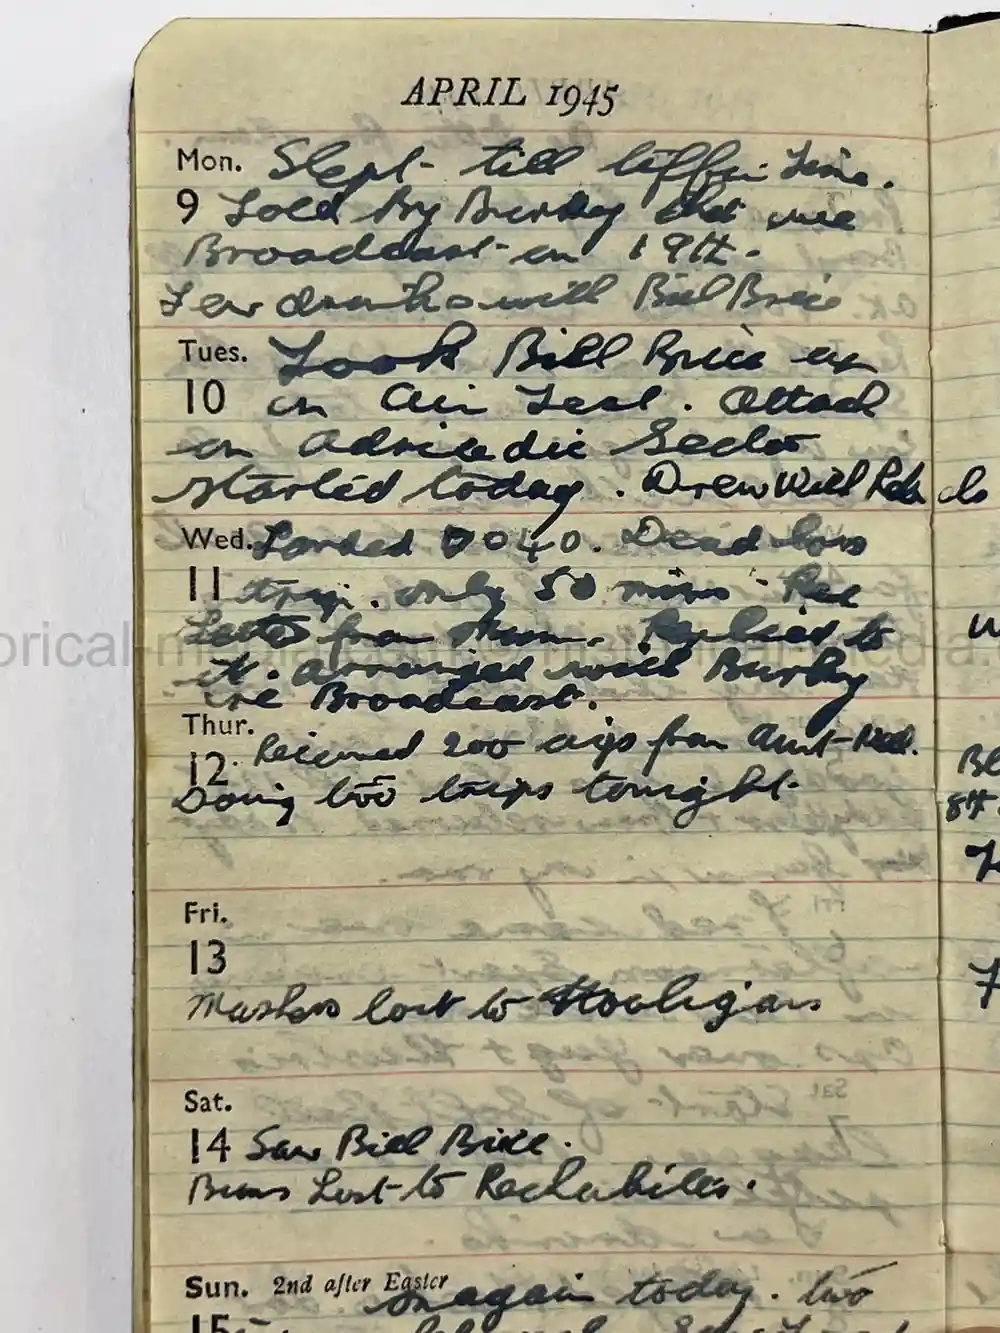 APRIL 1945
Mon. Slept till tiffin time.
9 Told by Burley that we
Broadcast on 19th.
Few drinks with Bill Brice
Tues. Took Bill Brice up
10 on Air Test. Attack
on Adriatic Sector
started today. Drew with Rch als
Wed. Landed 0040. Dead loss
11 trip. only 50 mins. Rec
Letter from Mum. Replied to
it. arranged with Burley
re Broadcast.
Thur. Received 200 cigs from Aunt
12. Doing two trips tonight.
Fri.
13
Mashers lost to Hooligans
Sat.
14 Saw Bill Brice.
Bums Lost to Rechabites.
Sun. 2nd after Easter
on again today. two
15